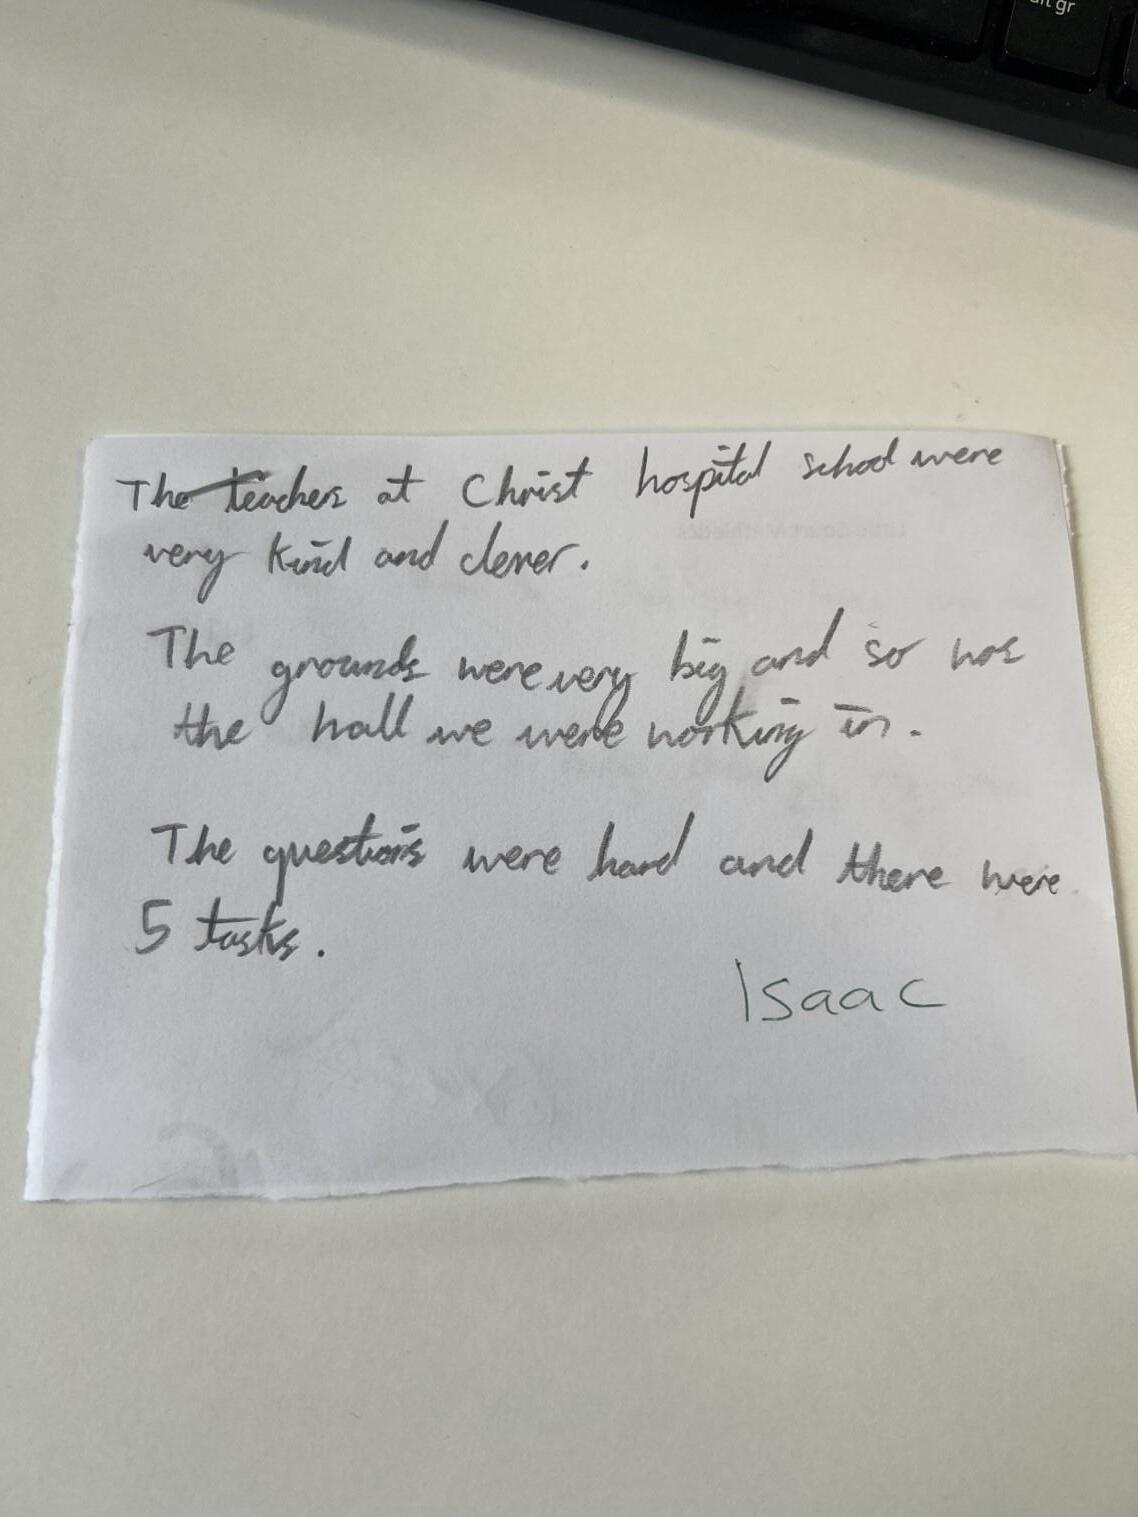 alt gr
The teachers at Christ hospital school were
very kind and clever.
The grounds were very big and so was
the hall we were working in.
The questions were hard and there were
5 tasks.
Isaac